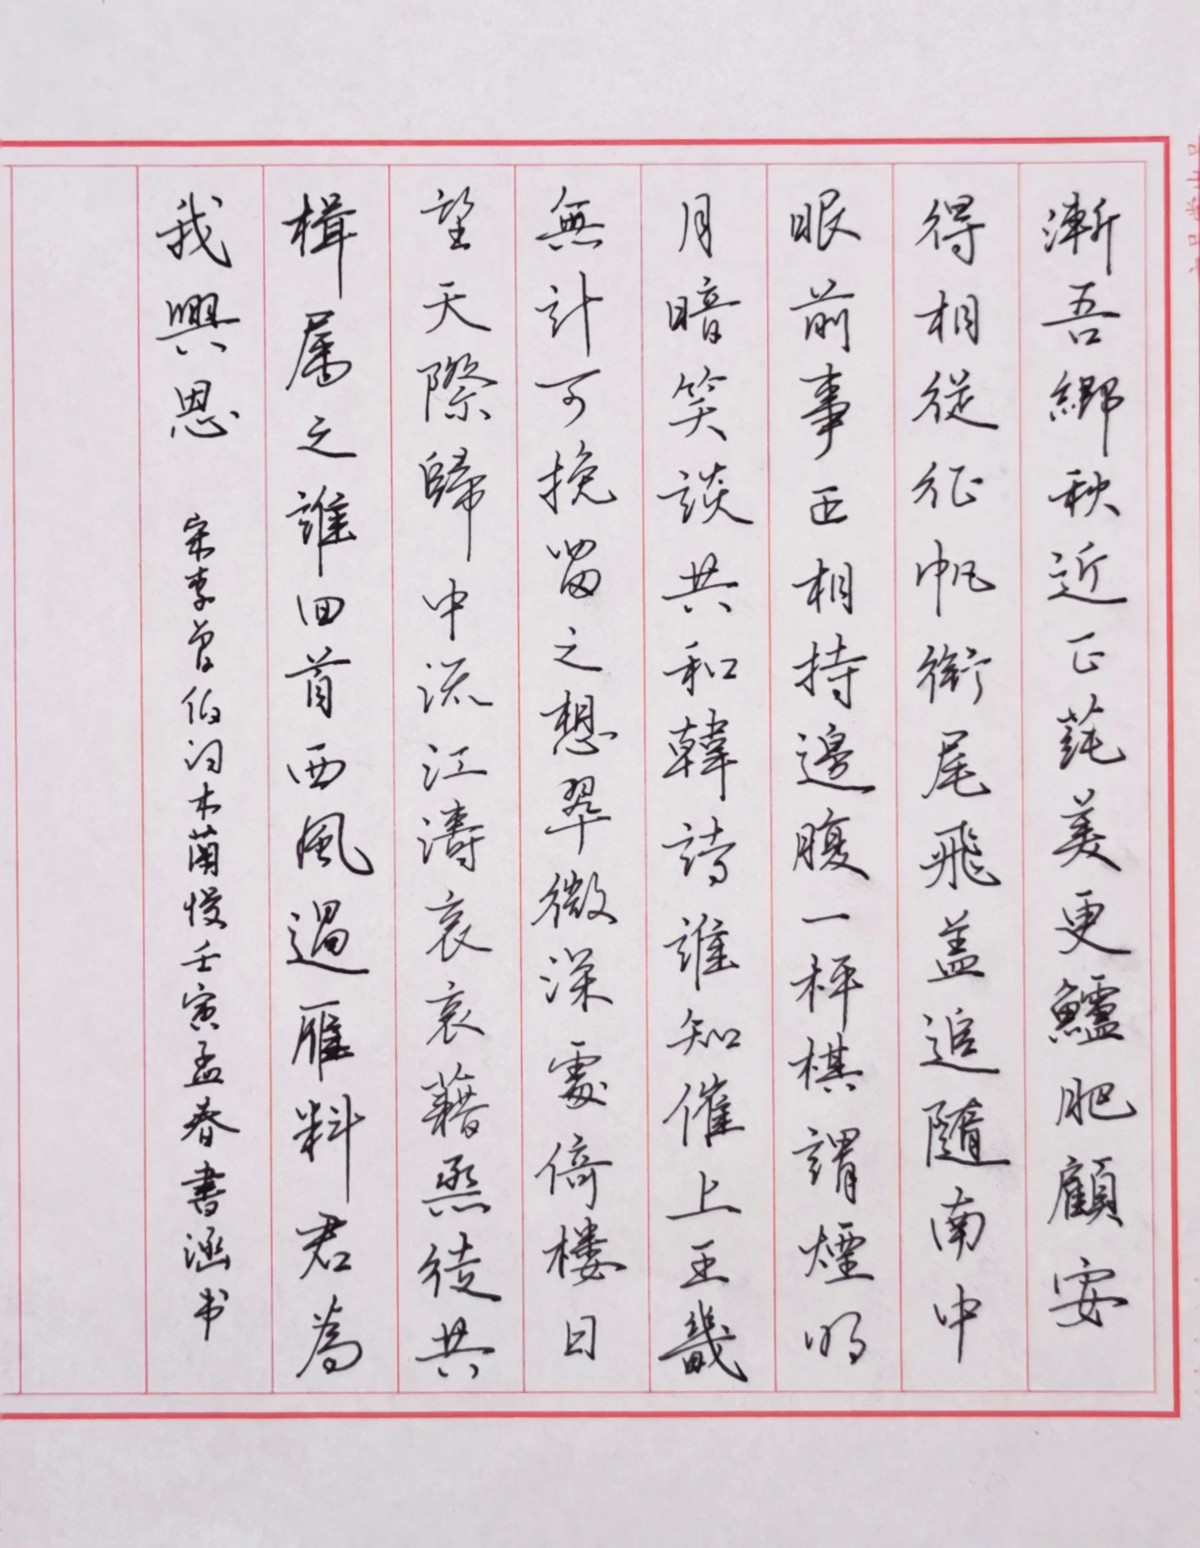 漸吾鄉秋近正蒓美更鱸肥顧安
得相從征帆銜尾飛盖追隨南中
眼前事正相持邊腹一枰棋謂煙明
月暗笑談共和韓詩誰知催上王畿
無計可挽留之想翠微深處倚樓日
望天際歸中流江濤哀哀藉烝徒共
楫屬之誰回首西風過雁料君為
我興思
宋李曾伯词木蘭慢壬寅孟春書涵书